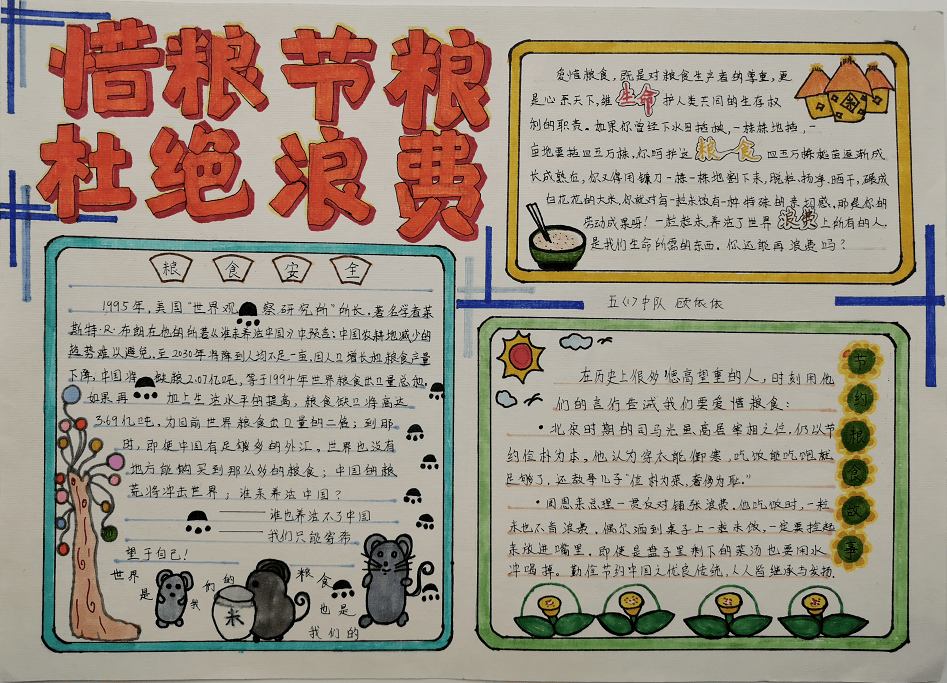 惜粮节粮
杜绝浪费
爱惜粮食，既是对粮食生产者的尊重，更
是心系天下，维生命护人类共同的生存权
利的职责。如果你曾经下水田插秧，一株株地插，一
亩地要插四五万株，你呵护这粮食四五万株秧苗逐渐成
长成熟后，你又得用镰刀一株一株地割下来，脱粒，扬净，晒干，碾成
白花花的大米，你就对每一粒米饭有一种特殊的亲切感，那是你的
劳动成果呀！一粒粒米，养活了世界浪费上所有的人，
是我们生命所需的东西。你还能再浪费吗？
五〈1〉中队 顾依依
粮 食 安 全
1995年，美国“世界观察研究所”所长，著名学者莱
斯特·R·布朗在他的所著《谁来养活中国》中预言：中国农耕地减少的
趋势难以避免，至2030年将降到人均不足一亩，因人口增长加粮食产量
下降，中国将缺粮2.07亿吨，等于1994年世界粮食出口量总和，
如果再加上生活水平的提高，粮食缺口将高达
3.69亿吨，为目前世界粮食出口量的二倍；到那
时，即使中国有足够多的外汇，世界也没有
地方能购买到那么多的粮食；中国的粮
荒将冲击世界；谁来养活中国？
——谁也养活不了中国
——我们只能寄希
望于自己！
世界是我们的粮食也是我们的
米
节约粮食故事
在历史上很多德高望重的人，时刻用他
们的言行告诫我们要爱惜粮食：
·北宋时期的司马光虽高居宰相之位，仍以节
约俭朴为本，他认为穿衣能御寒，吃饭能吃饱就
足够了，还教导儿子“俭朴为荣，奢侈为耻。”
·周恩来总理一贯反对铺张浪费，他吃饭时，一粒
米也不肯浪费，偶尔洒到桌子上一粒米饭，一定要捡起
来放进嘴里，即使是盘子里剩下的菜汤也要用水
冲喝掉。勤俭节约中国之优良传统，人人皆继承与发扬.